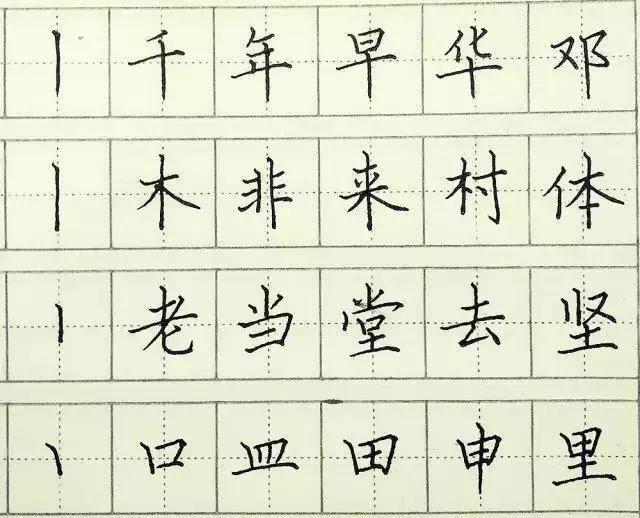 丨千年早华邓
丨木非来村体
丨老当堂去坚
丨口皿田申里